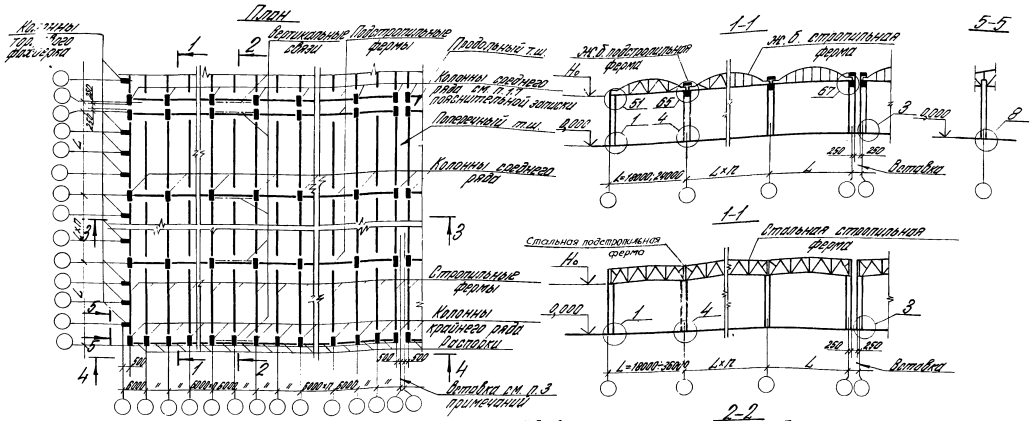 План
1-1
5-5
Вертикальные
связи
Подстропильные
фермы
Продольный т.ш.
Колонны среднего
ряда см. п. 1.1
пояснительной записки
Поперечный т.ш.
Колонны среднего
ряда
Стропильные
фермы
Колонны
крайнего ряда
Распорки
Вставка см. п. 3
примечаний
1
2
3
3
5
5
4
4
1
2
250
250
L
L×n
L
500
500
500
6000
"
"
6000×n
6000
"
"
6000×n
6000
"
"
Ж.б. подстропильная
ферма
Ж.б. стропильная
ферма
Н₀
0,000
51
65
67
1
4
3
0,000
8
250
250
L=18000;24000
L×n
L
Вставка
1-1
Стальная подстропильная
ферма
Стальная стропильная
ферма
Н₀
0,000
1
4
3
250
250
L=18000÷36000
L×n
L
Вставка
2-2